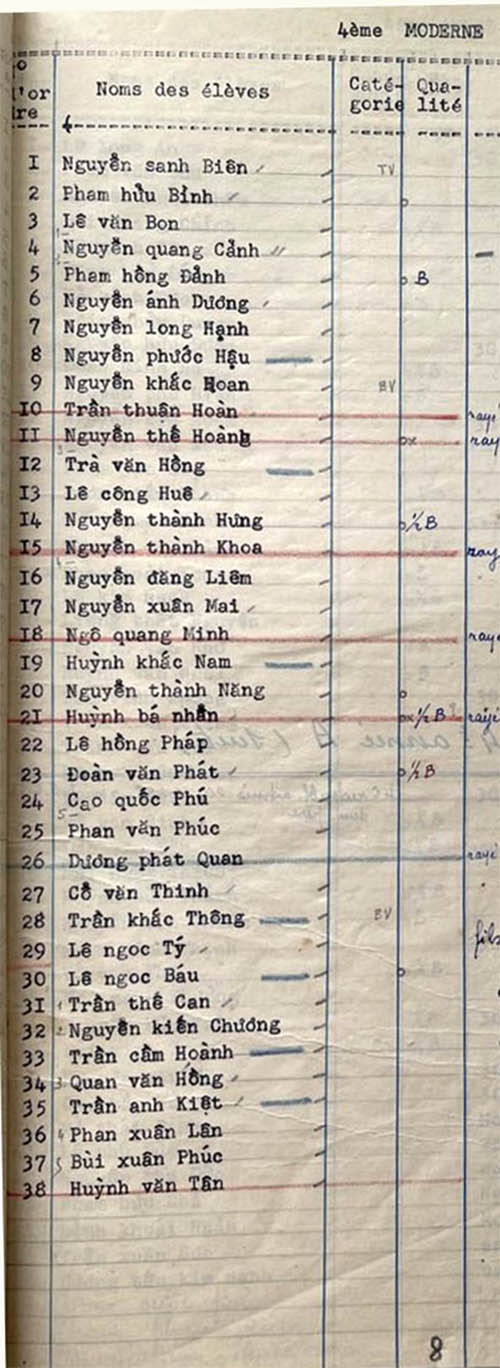 4ème MODERNE
Noms des élèves Caté- Qua-
l'or gorie lité
dre
I Nguyễn sanh Biên TV
2 Phạm hữu Bỉnh
3 Lê văn Bon
4 Nguyễn quang Cảnh
5 Phạm hồng Đảnh B
6 Nguyễn ánh Dương
7 Nguyễn long Hạnh
8 Nguyễn phước Hậu
9 Nguyễn khắc Hoan BV
IO Trần thuận Hoàn rayé
II Nguyễn thế Hoành ox ray
I2 Trà văn Hồng
I3 Lê công Huê
I4 Nguyễn thành Hưng ½ B
I5 Nguyễn thành Khoa ray
I6 Nguyễn đăng Liêm
I7 Nguyễn xuân Mai
I8 Ngô quang Minh rayé
I9 Huỳnh khắc Nam
20 Nguyễn thành Năng
2I Huỳnh bá nhẫn ox ½ B rayé
22 Lê hồng Pháp
23 Đoàn văn Phát ½ B
24 Cao quốc Phú
25 Phan văn Phúc
26 Dương phát Quan rayé
27 Cổ văn Thinh
28 Trần khắc Thông BV
29 Lê ngoc Tý fils
30 Lê ngoc Báu
3I 1 Trần thế Can
32 2 Nguyễn kiến Chương
33 Trần cầm Hoành
34 3 Quan văn Hồng
35 Trần anh Kiệt
36 4 Phan xuân Lân
37 5 Bùi xuân Phúc
38 Huỳnh văn Tân
8